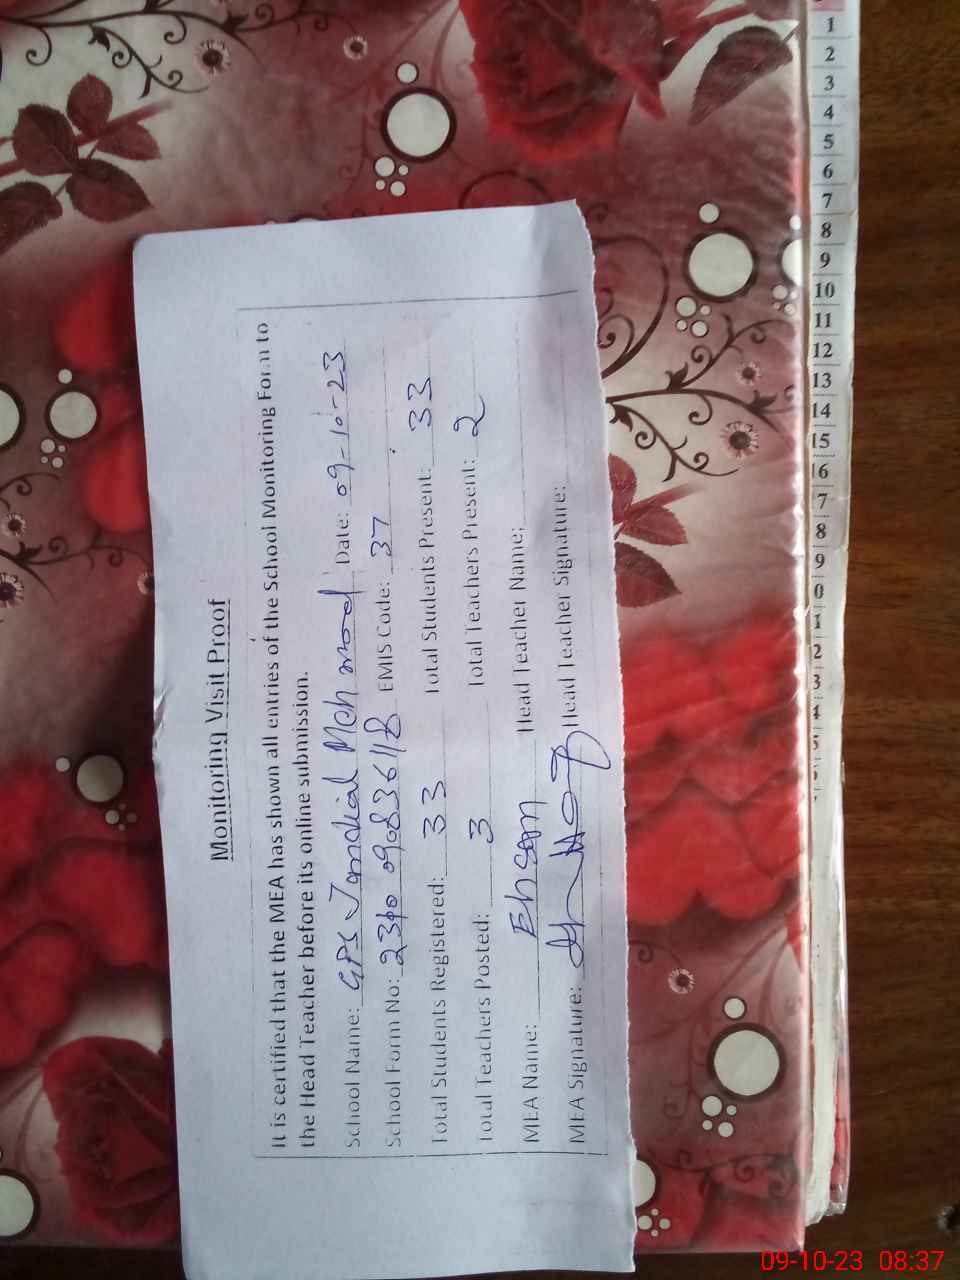 Monitoring Visit Proof
It is certified that the MEA has shown all entries of the School Monitoring Form to
the Head Teacher before its online submission.
School Name: GPS Jandial Mehmood Date: 09-10-23
School Form No: EMIS Code: 37
Total Students Registered: 33 Total Students Present: 33
Total Teachers Posted: 3 Total Teachers Present: 2
MEA Name: Ehsan Head Teacher Name:
MEA Signature: Head Teacher Signature:
1
2
3
4
5
6
7
8
9
10
11
12
13
14
15
16
7
8
9
0
1
2
3
4
5
09-10-23 08:37